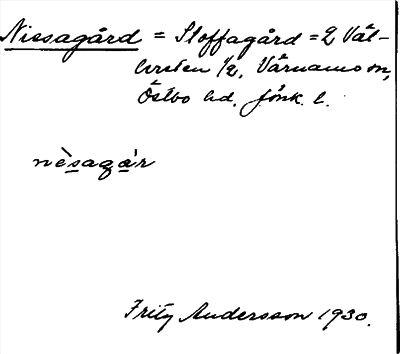 Nissagård = Stoffagård = 2 Väl-
kersten 1/2, Värnamo sn,
Östbo hd. Jönk. l.
nèsagár
Fritz Andersson 1930.